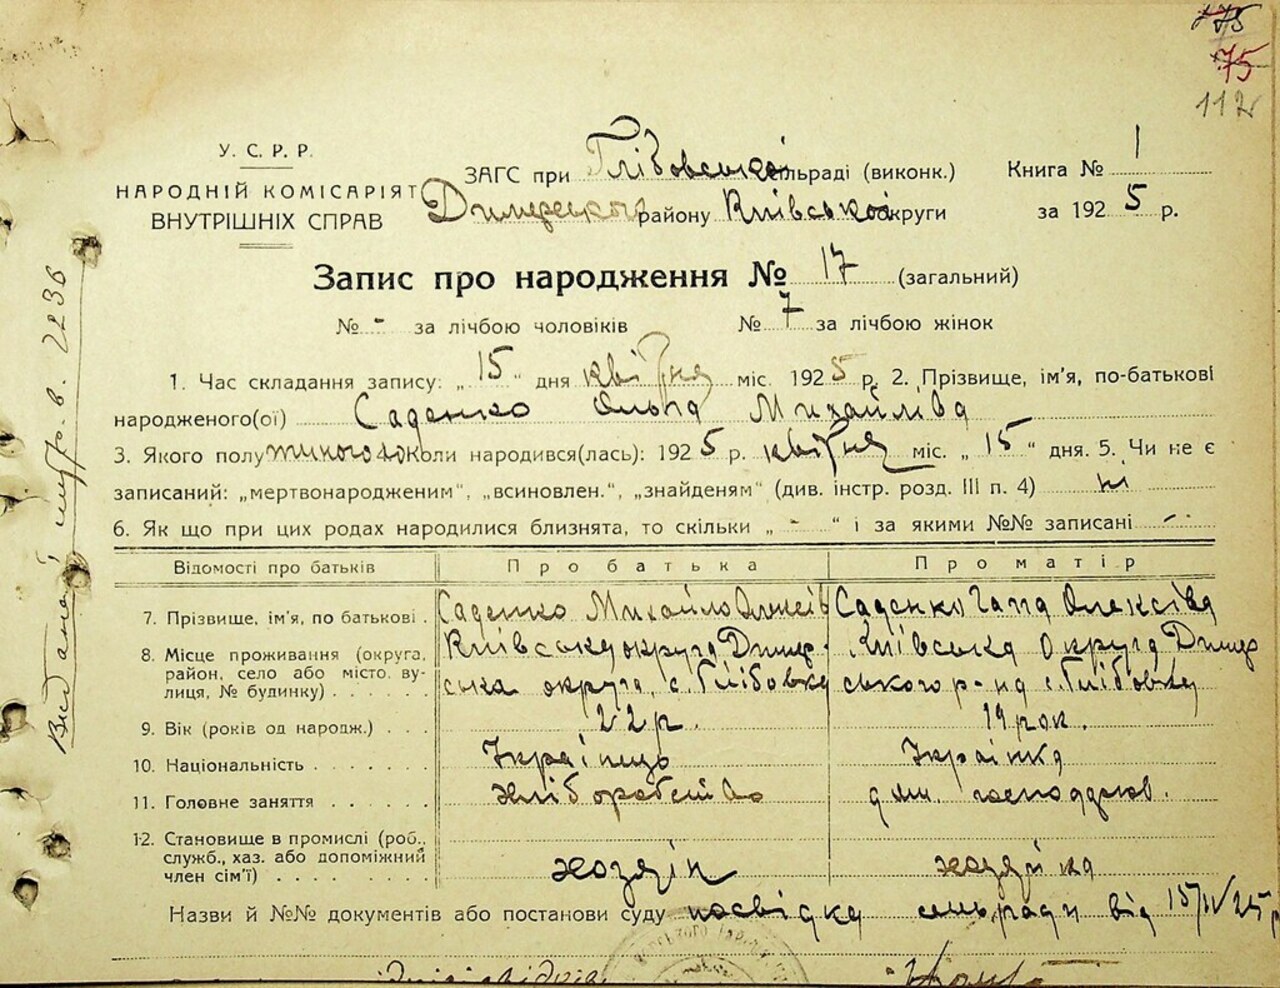 175
75
112
У. С. Р. Р.
НАРОДНІЙ КОМІСАРІЯТ
ВНУТРІШНІХ СПРАВ
ЗАГС при Глібовській сільраді (виконк.)
Димерського району Київської округи
Книга № 1
за 1925 р.
Запис про народження № 17 (загальний)
№ - за лічбою чоловіків № 7 за лічбою жінок
1. Час складання запису: „ 15 “ дня квітня міс. 1925 р. 2. Прізвище, ім'я, по-батькові
народженого(ої) Саденко Ольга Михайлівна
3. Якого полу жиночого 4. коли народився(лась): 1925 р. квітня міс. „ 15 “ дня. 5. Чи не є
записаний: „мертвонародженим“, „всиновлен.“, „знайденям“ (див. інстр. розд. III п. 4) ні
6. Як що при цих родах народилися близнята, то скільки „ - “ і за якими №№ записані -
Відомості про батьків Про батька Про матір
7. Прізвище, ім'я, по батькові . Саденко Михайло Саденко Гапа Олексівна
8. Місце проживання (округа, район, село або місто, вулиця, № будинку) Київська округа с. Глібовка Київська округа Димерського р-на с. Глібовка
9. Вік (років од народж.) . . . 22 р. 19 рок.
10. Національність Українець Українка
11. Головне заняття хліборобство дом. господар.
12. Становище в промислі (роб., служб., хаз. або допоміжний член сім'ї) хозяїн хозяйка
Назви й №№ документів або постанови суду посвідка сельради від 15/IV 25 р